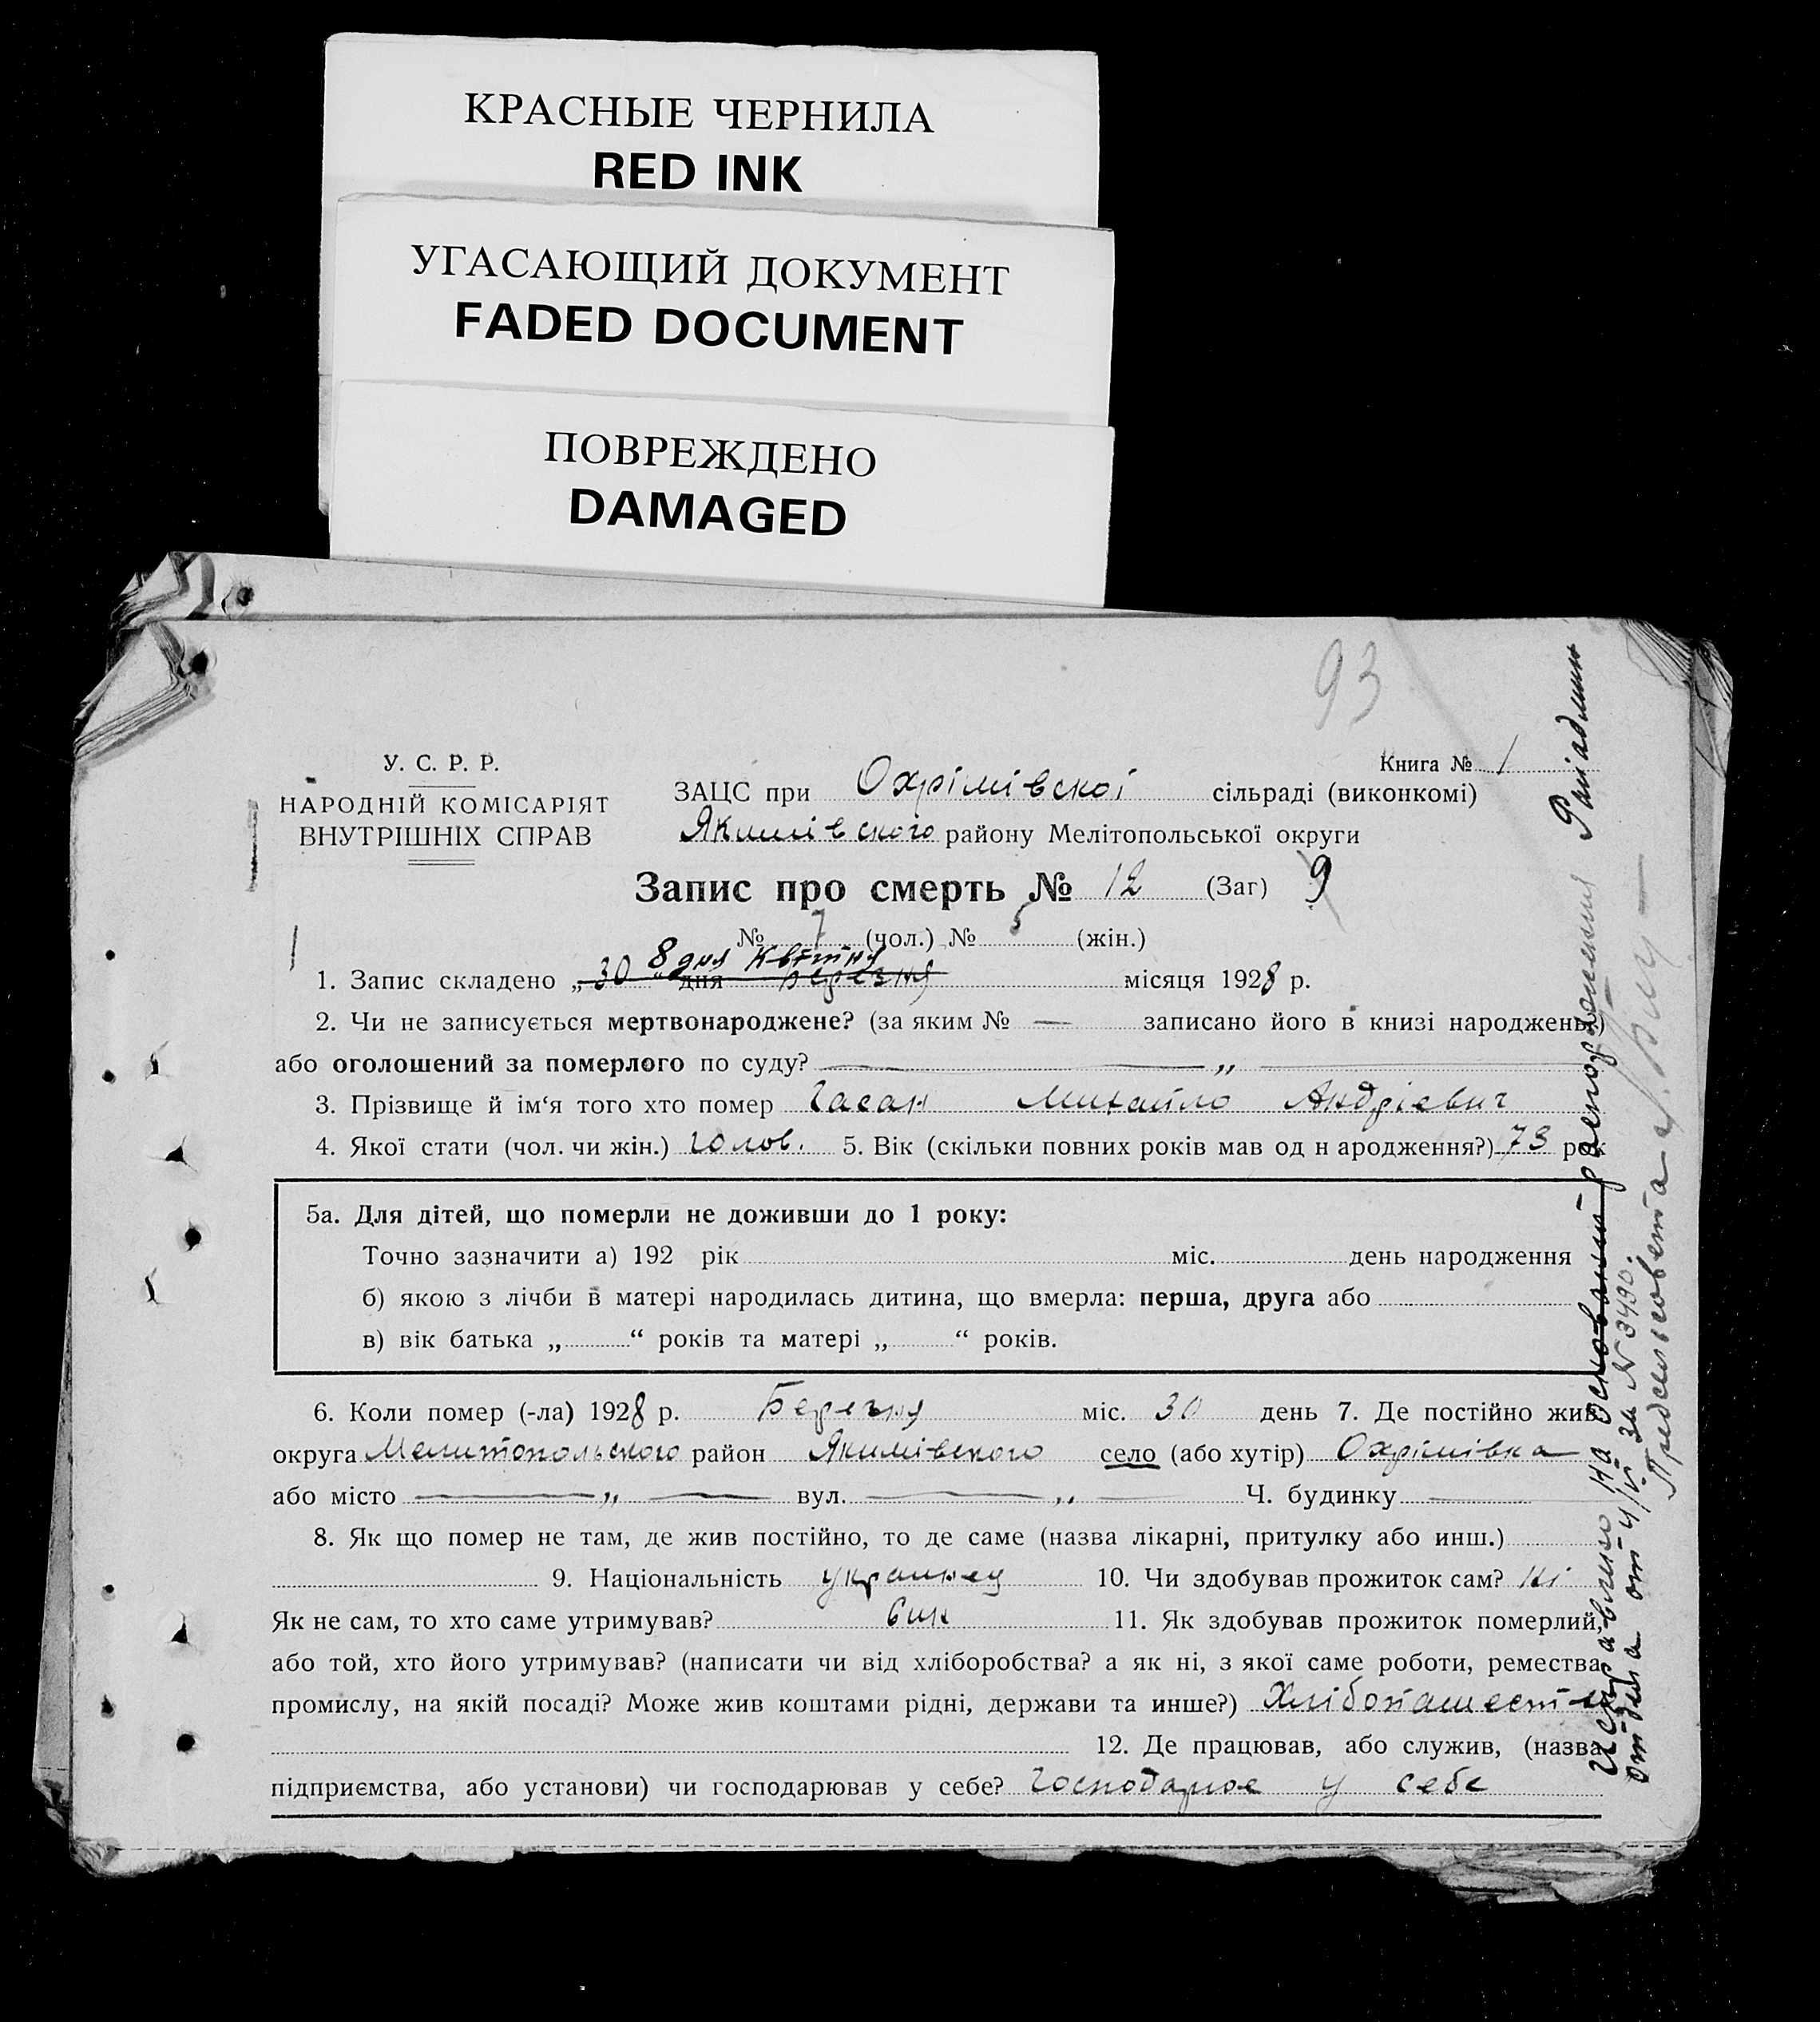 КРАСНЫЕ ЧЕРНИЛА
RED INK
УГАСАЮЩИЙ ДОКУМЕНТ
FADED DOCUMENT
ПОВРЕЖДЕНО
DAMAGED
93
У. С. Р. Р.
НАРОДНІЙ КОМІСАРІЯТ
ВНУТРІШНІХ СПРАВ
Книга № 1
ЗАЦС при Охрімівскої сільраді (виконкомі)
Якимівского району Мелітопольської округи
Запис про смерть № 12 (Заг) 9
№ 7 (чол.) № 5 (жін.)
8 дня Квітня
1. Запис складено „30 " дня Березня місяця 1928 р.
2. Чи не записується мертвонароджене? (за яким № — записано його в книзі народжень)
або оголошений за померлого по суду? — „ —
3. Прізвище й ім‘я того хто помер Часан Михайло Андрієвич
4. Якої стати (чол. чи жін.) чолов. 5. Вік (скільки повних років мав од н ародження?) 73 ро
5а. Для дітей, що померли не доживши до 1 року:
Точно зазначити а) 192 рік міс. день народження
б) якою з лічби в матері народилась дитина, що вмерла: перша, друга або
в) вік батька „ “ років та матері „ “ років.
6. Коли помер (-ла) 1928 р. Березня міс. 30 день 7. Де постійно жив
округа Мелитопольского район Якимівского село (або хутір) Охрімівка
або місто — „ — вул. — „ — Ч. будинку —
8. Як що помер не там, де жив постійно, то де саме (назва лікарні, притулку або инш.)
9. Національність украинец 10. Чи здобував прожиток сам? Ні
Як не сам, то хто саме утримував? Син 11. Як здобував прожиток померлий,
або той, хто його утримував? (написати чи від хліборобства? а як ні, з якої саме роботи, ремества
промислу, на якій посаді? Може жив коштами рідні, держави та инше?) Хлібопашест
12. Де працював, або служив, (назва
підприємства, або установи) чи господарював у себе? Господарюе у себе
Исправлено на основании распоряжения Райадмин
отдела от 4/V за № 3490.
Предсельсовета